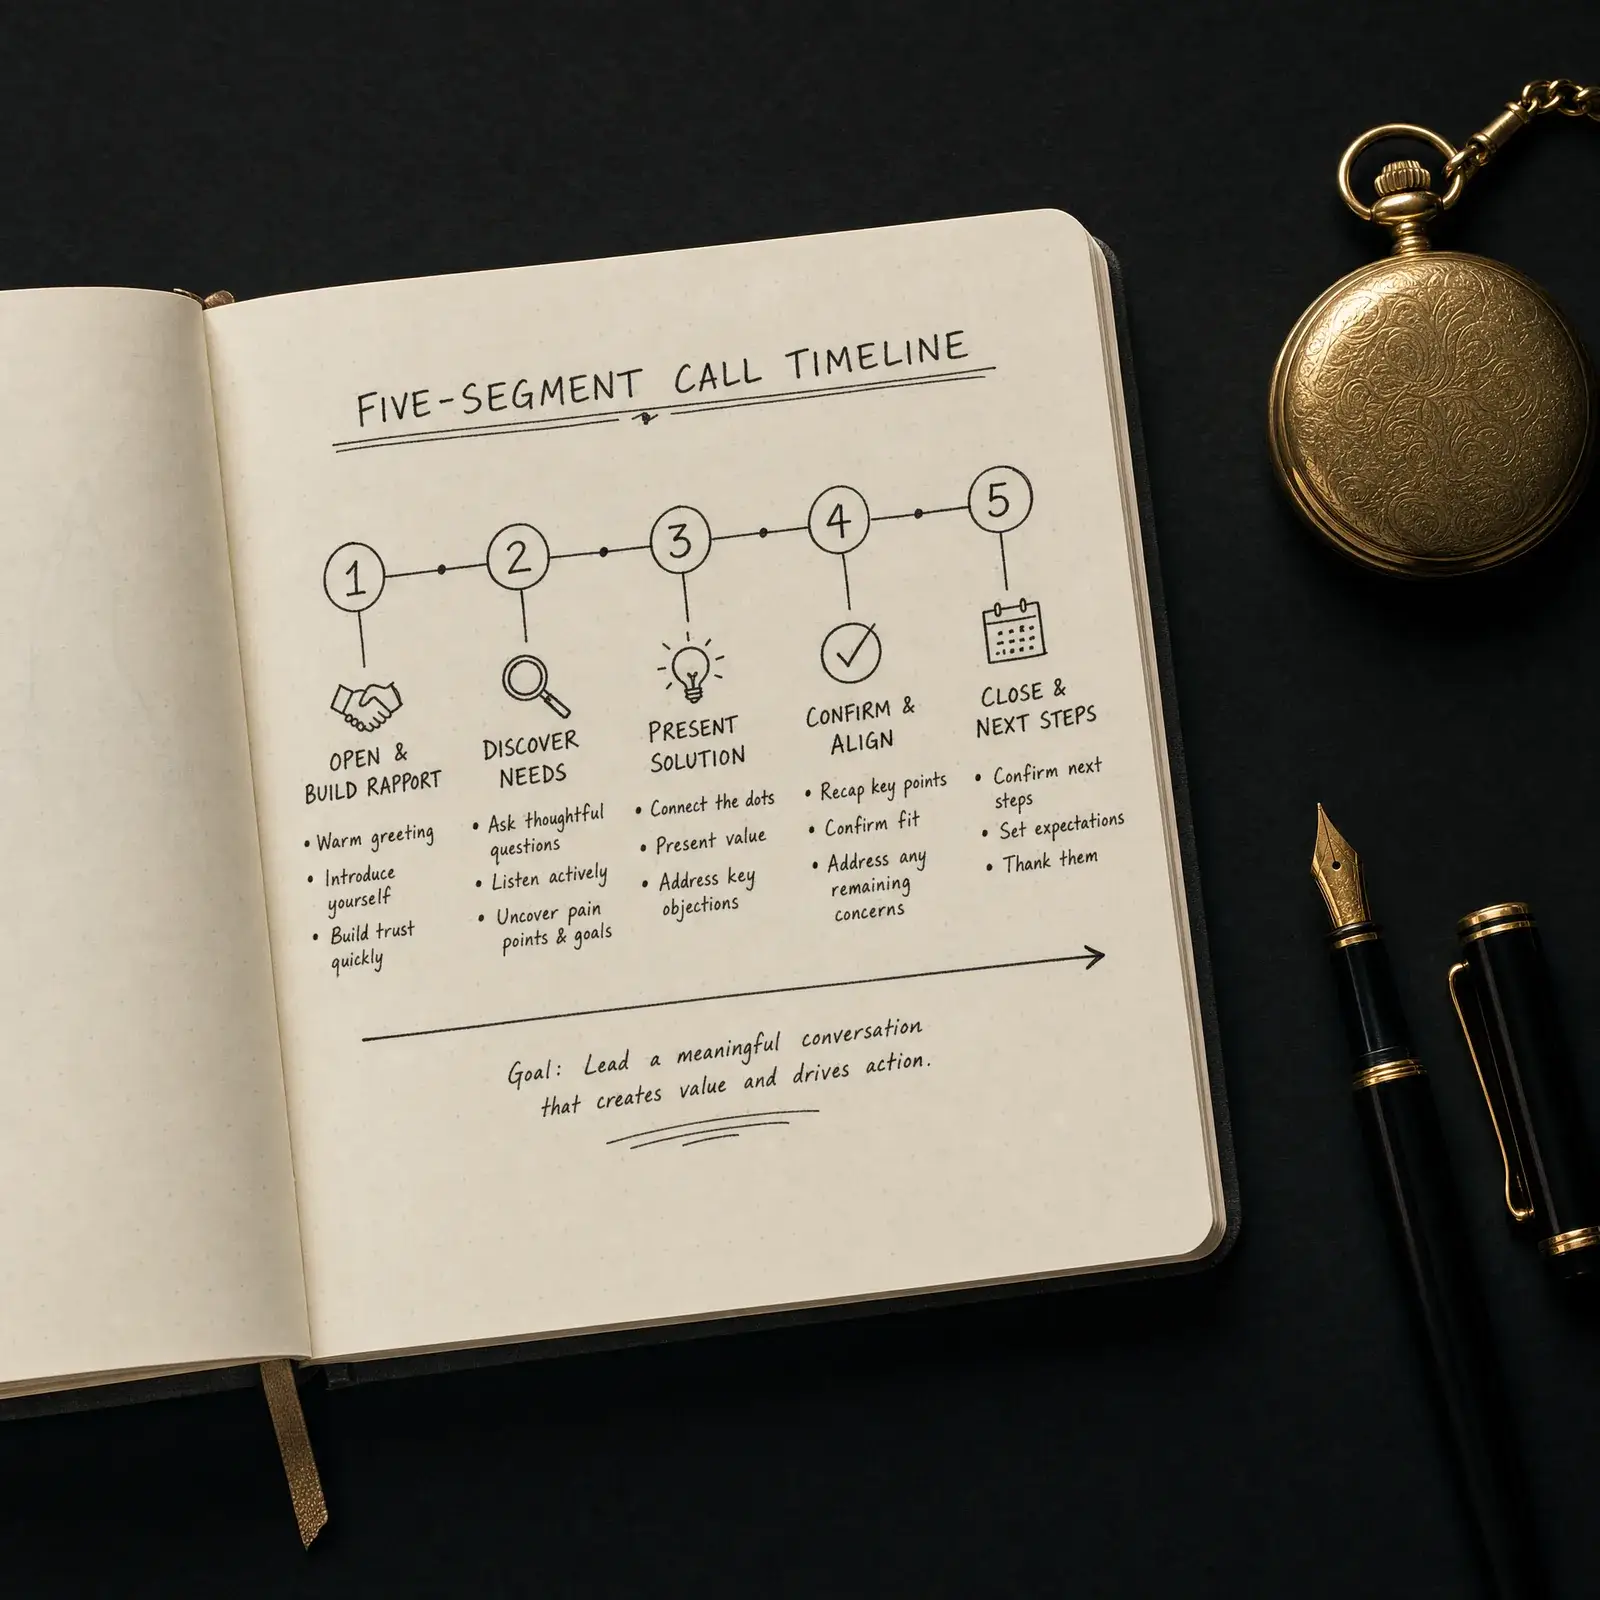 FIVE-SEGMENT CALL TIMELINE
1
2
3
4
5
OPEN &
BUILD RAPPORT
• Warm greeting
• Introduce
yourself
• Build trust
quickly
DISCOVER
NEEDS
• Ask thoughtful
questions
• Listen actively
• Uncover pain
points & goals
PRESENT
SOLUTION
• Connect the dots
• Present value
• Address key
objections
CONFIRM &
ALIGN
• Recap key points
• Confirm fit
• Address any
remaining
concerns
CLOSE &
NEXT STEPS
• Confirm next
steps
• Set expectations
• Thank them
Goal: Lead a meaningful conversation
that creates value and drives action.